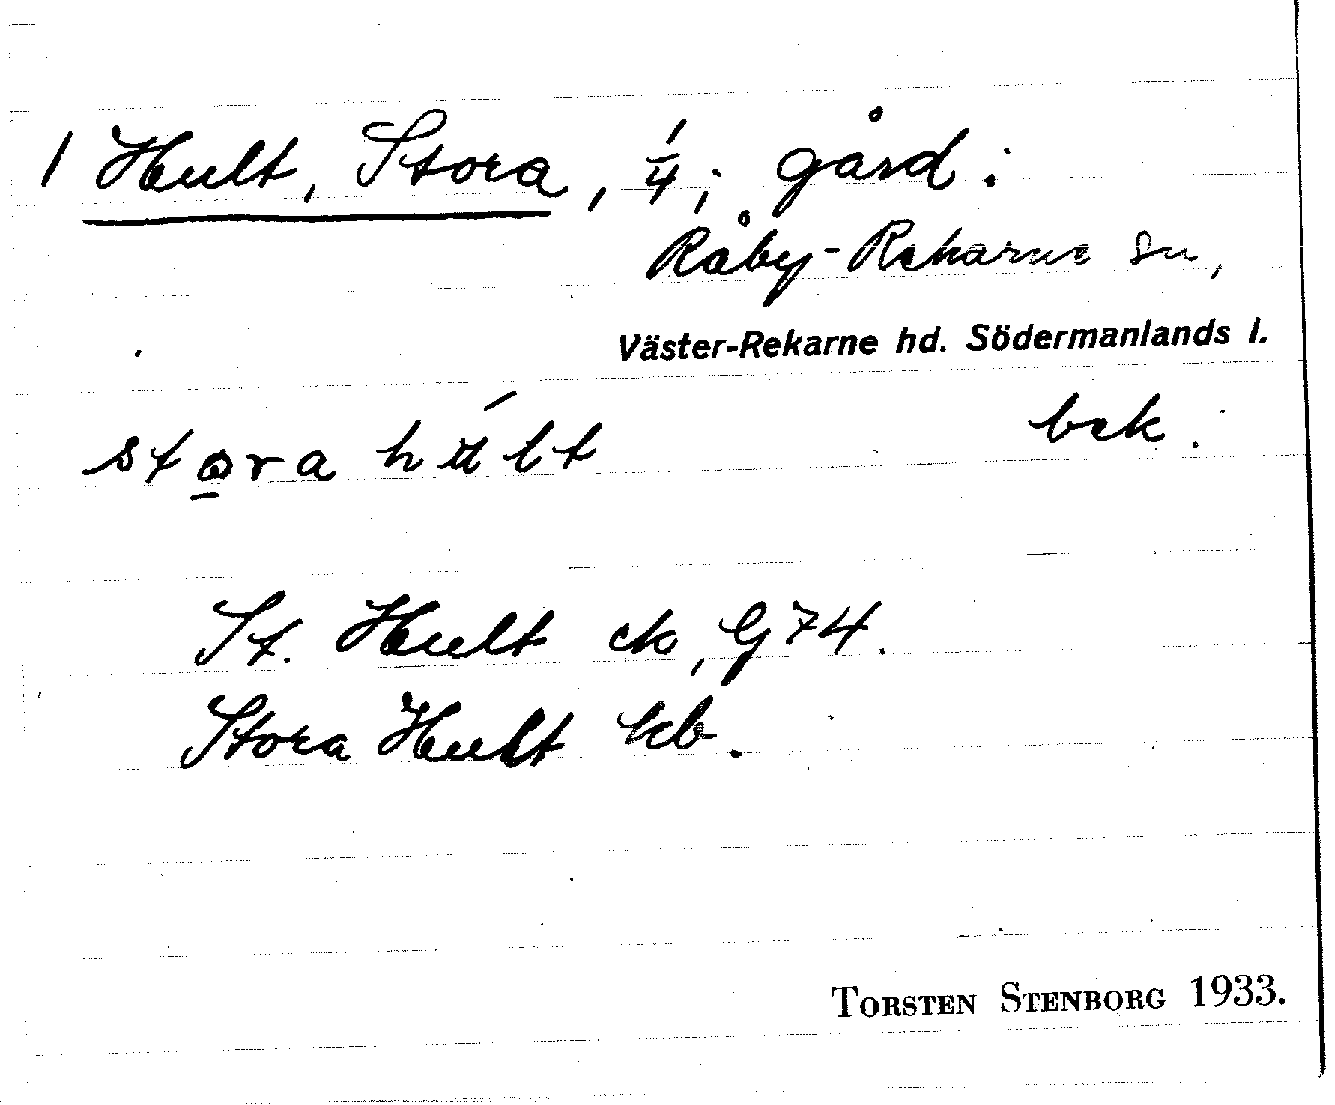 1 Hult, Stora, 1/4; gård:
Råby-Rekarne sn,
Väster-Rekarne hd. Södermanlands l.
stora hult bek.
St. Hult ek, G74.
Stora Hult kb.
TORSTEN STENBORG 1933.